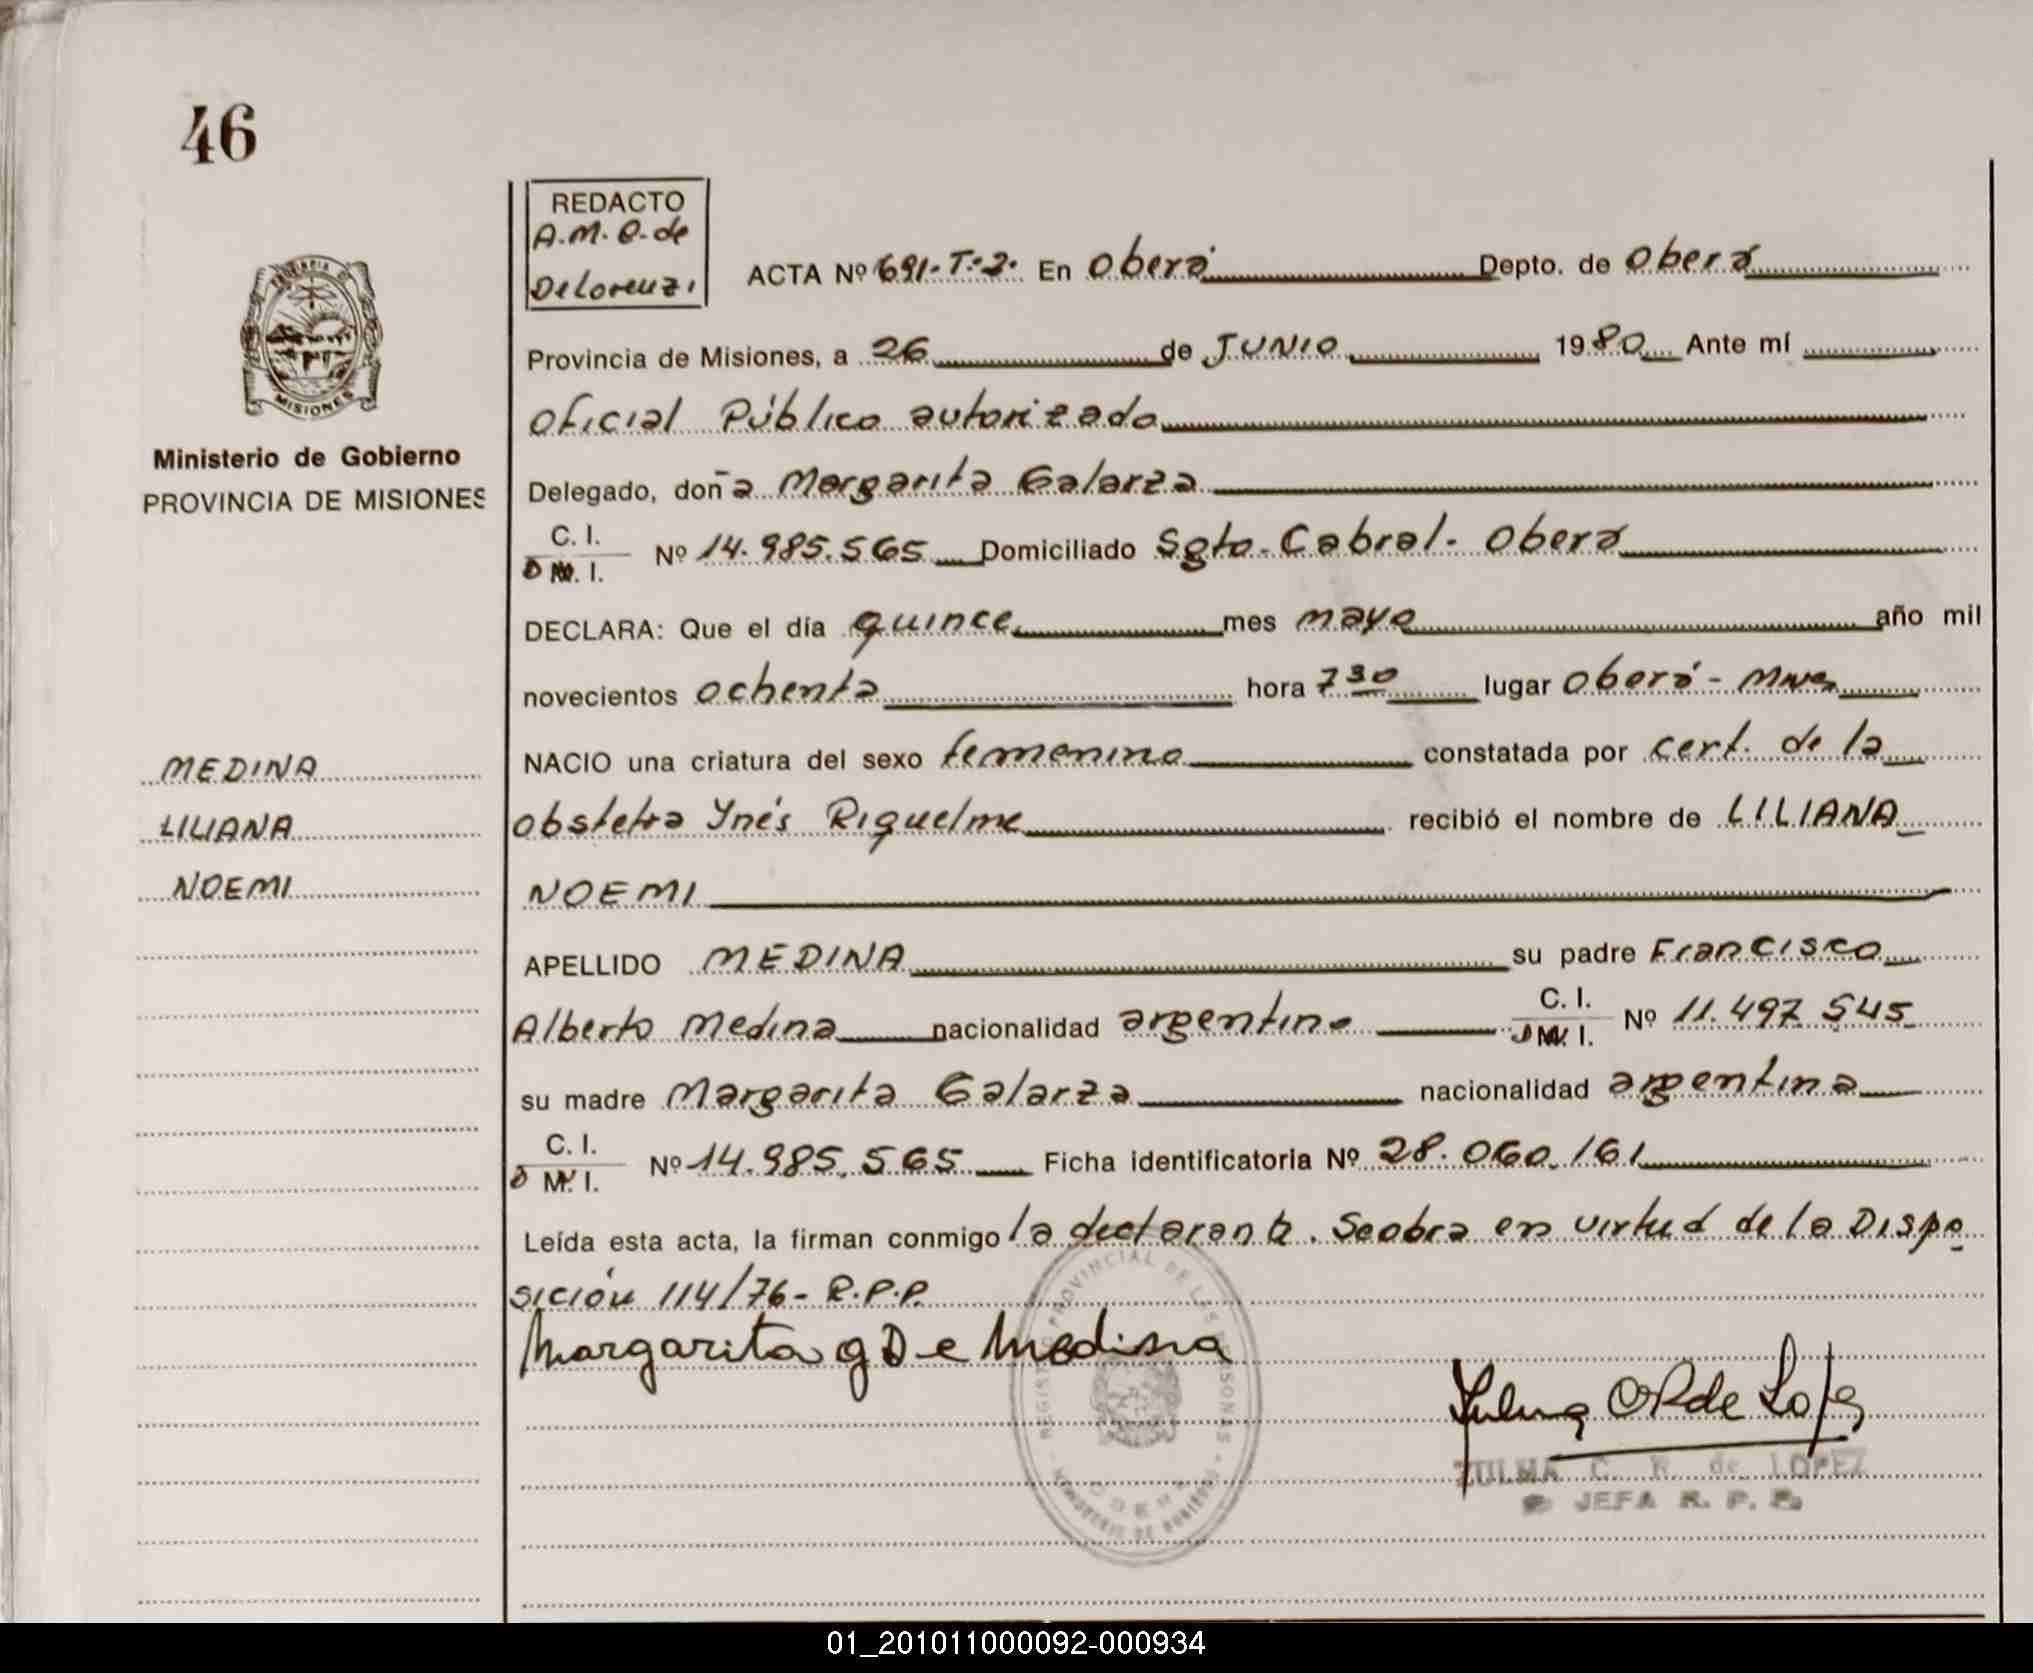 46
REDACTO
A.M.C. de
DeLorenzi
ACTA Nº 691-T:2: En Oberá Depto. de Oberá
Provincia de Misiones, a 26 de JUNIO 1980 Ante mí
Oficial Público autorizado
Ministerio de Gobierno
PROVINCIA DE MISIONES
Delegado, doña Margarita Galarza
C. I.
D N. I. Nº 14.985.565 Domiciliado Sgto. Cabral - Oberá
DECLARA: Que el día quince mes mayo año mil
novecientos ochenta hora 7 30 lugar Oberá - Mnes
MEDINA
NACIO una criatura del sexo femenino constatada por cert. de la
LILIANA
obstetra Ynés Riquelme recibió el nombre de LILIANA
NOEMI
NOEMI
APELLIDO MEDINA su padre Francisco
Alberto Medina nacionalidad argentino C. I. D N. I. Nº 11.497.545
su madre Margarita Galarza nacionalidad argentina
C. I.
D N. I. Nº 14.985.565 Ficha identificatoria Nº 28.060.161
Leída esta acta, la firman conmigo la declarante. Seobra en virtud de la Dispo
sición 114/76- R.P.P.
Margarita g De Medina
REGISTRO PROVINCIAL DE LAS PERSONAS
OBERA
MISIONES
ZULMA C. R. de LOPEZ
JEFA R. P. P.
01_201011000092-000934